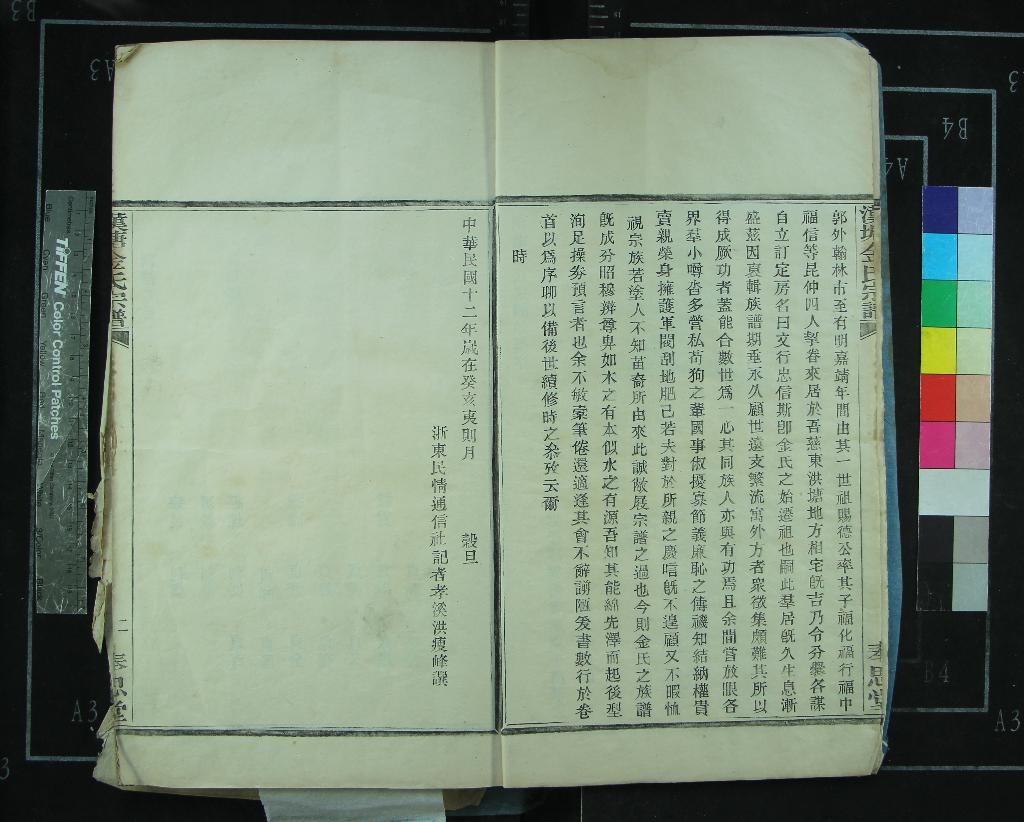 郭外翰林市至有明嘉靖年間由其一世祖賜德公率其子福化福行福中
福信等昆仲四人挈眷來居於吾慈東洪塘地方相宅旣吉乃令分爨各謀
自立訂定房名曰文行忠信斯卽金氏之始遷祖也嗣此羣居旣久生息漸
盛茲因裒輯族譜期垂永久顧世遠支繁流寓外方者衆徵集頗難其所以
得成厥功者蓋能合數世爲一心其同族人亦與有功焉且余閒嘗放眼各
界羣小噂沓多營私苟狗之輩國事俶擾哀節義廉恥之傳禨知結納權貴
賣親榮身擁護軍閥刮地肥己若夫對於所親之慶唁旣不遑顧又不暇恤
視宗族若塗人不知苗裔所由來此誠散展宗譜之過也今則金氏之族譜
旣成分昭穆辨尊卑如木之有本似水之有源吾知其能綿先澤而起後型
洵足操劵預言者也余不敏槖筆倦還適逢其會不辭謭陋爰書數行於卷
首以爲序聊以備後世續修時之叅攷云爾
時
中華民國十二年歲在癸亥夷則月 穀旦
浙東民情通信社記者孝溪洪瘦峰譔
漢塘金氏宗譜
二
奉思堂
TIFFEN Color Control Patches
A3
B4
A4